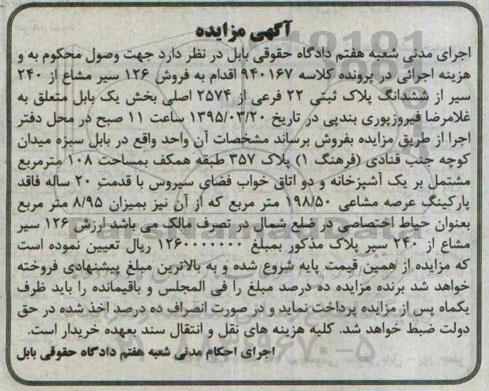 آگهی مزایده
اجرای مدنی شعبه هفتم دادگاه حقوقی بابل در نظر دارد جهت وصول محکوم به و
هزینه اجرائی در پرونده کلاسه ۹۴۰۱۶۷ اقدام به فروش ۱۲۶ سیر مشاع از ۲۴۰
سیر از ششدانگ پلاک ثبتی ۲۲ فرعی از ۲۵۷۴ اصلی بخش یک بابل متعلق به
غلامرضا فیروزپوری بندپی در تاریخ ۱۳۹۵/۰۳/۲۰ ساعت ۱۱ صبح در محل دفتر
اجرا از طریق مزایده بفروش برساند مشخصات آن واحد واقع در بابل سبزه میدان
کوچه جنب قنادی (فرهنگ ۱) پلاک ۳۵۷ طبقه همکف بمساحت ۱۰۸ مترمربع
مشتمل بر یک آشپزخانه و دو اتاق خواب فضای سیروس با قدمت ۲۰ ساله فاقد
پارکینگ عرصه مشاعی ۱۹۸/۵۰ متر مربع که از آن نیز بمیزان ۸/۹۵ متر مربع
بعنوان حیاط اختصاصی در ضلع شمال در تصرف مالک می باشد ارزش ۱۲۶ سیر
مشاع از ۲۴۰ سیر پلاک مذکور بمبلغ ۱۲۶۰۰۰۰۰۰۰ ریال تعیین نموده است
که مزایده از همین قیمت پایه شروع شده و به بالاترین مبلغ پیشنهادی فروخته
خواهد شد برنده مزایده ده درصد مبلغ را فی المجلس و باقیمانده را باید ظرف
یکماه پس از مزایده پرداخت نماید و در صورت انصراف ده درصد اخذ شده در حق
دولت ضبط خواهد شد. کلیه هزینه های نقل و انتقال سند بعهده خریدار است.
اجرای احکام مدنی شعبه هفتم دادگاه حقوقی بابل